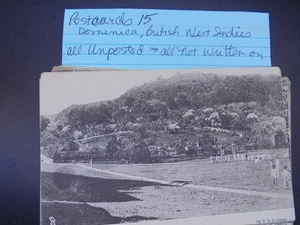 Postcards 15
Dominica, British West Indies
all Unposted → all not written on